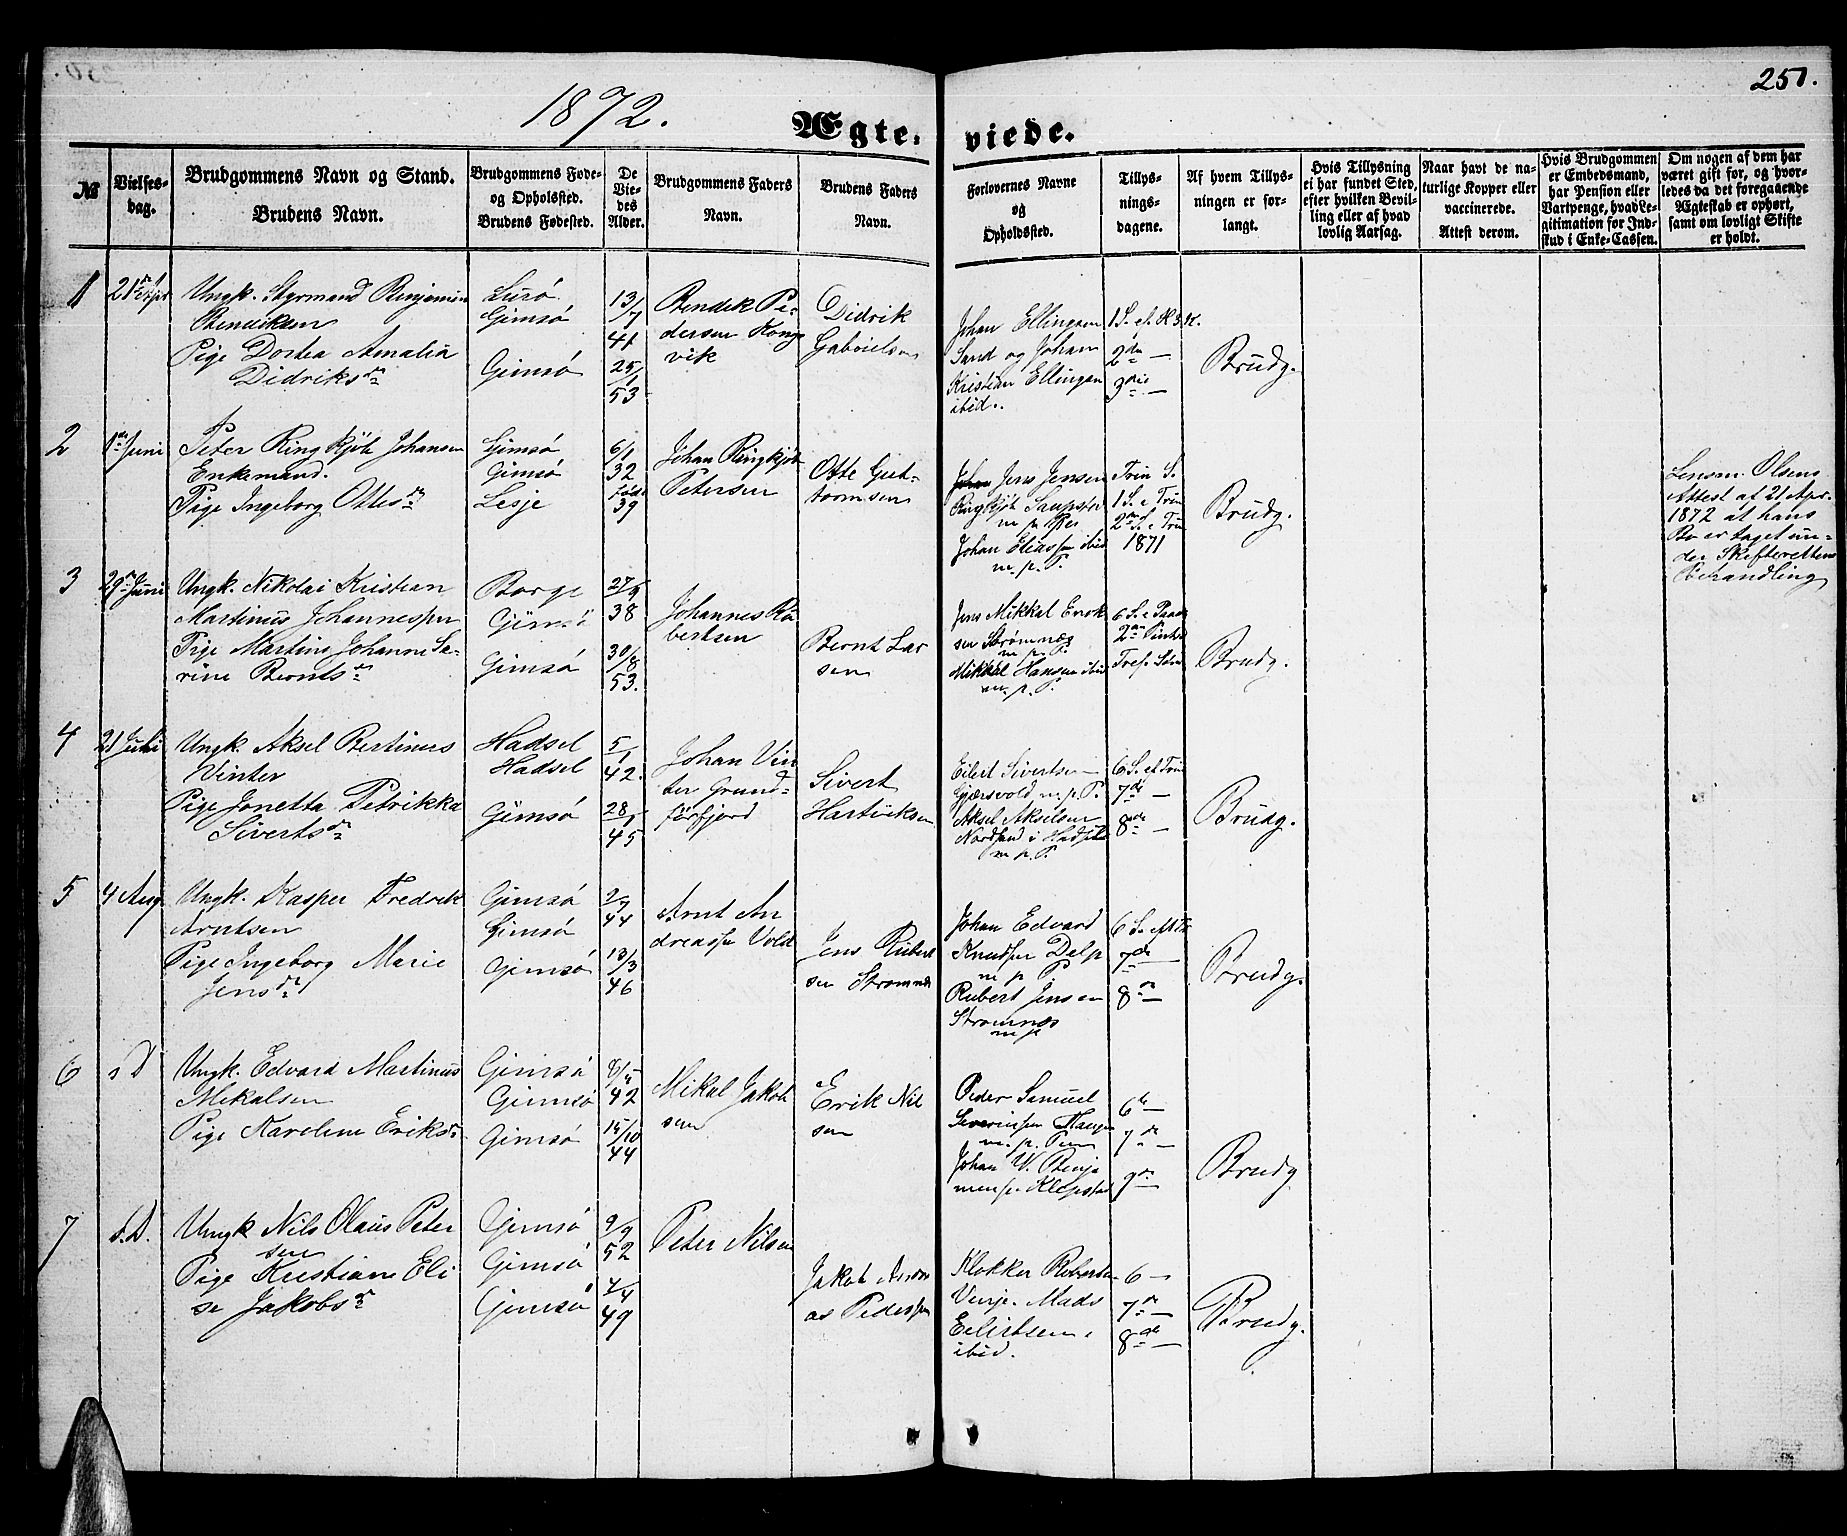 251.
1872.
Ægteviede.
№
Vielsesdag.
Brudgommens Navn og Stand.
Brudens Navn.
Brudgommens Føde-
og Opholdsted.
Brudens Fødested.
De
Vie-
des
Alder.
Brudgommens Faders
Navn.
Brudens Faders
Navn.
Forlovernes Navne
og
Opholdsted.
Tillys-
nings-
dagene.
Af hvem Tillys-
ningen er for-
langt.
Hvis Tillysning
ei har fundet Sted,
efter hvilken Bevil-
ling eller af hvad
lovlig Aarsag.
Naar havt de na-
turlige Kopper eller
vaccinerede.
Attest derom.
Hvis Brudgommen
er Embedsmand,
har Pension eller
Vartpenge, hvad Le-
gitimation for Ind-
skud i Enke-Cassen.
Om nogen af dem har
været gift før, og hvor-
ledes da det foregaaende
Ægteskab er ophørt,
samt om lovligt Skifte
er holdt.
1
21de Apr
Ungk. Styrmand Benjamin
Bendiksen
Pige Dortea Amalia
Didriksdr
Lurø
Gimsø
Gimsø
13/7
41
25/1
53
Bendik Pe-
dersen Kong
vik
Didrik
Gabrielsen
Johan Ellingsen
Sand og Johan
Kristian Ellingsen
ibid.
1 S. ef. H 3 K.
2den —
3die —
Brudg.
2
1ste Juni
Peter Ringkjøb Johansen
Enkemand.
Pige Ingeborg Ottesdr
Gimsø
Gimsø
Lesje
6/1
32
født
39
Johan Ringkjøb
Petersen
Otte Gut-
tormsen
Jens Jensen
Ringkjøb
m p
Johan Eliass. ibid
m. p. P.
Trin S.
1 S. e Trin
2den S. e Trin
1871
Brudg.
Lensm. Olsens
Attest af 21 Apr.
1872 at hans
Bo er taget un-
der Skifterettens
Behandling
3
29de Juni
Ungk. Nikolai Kristian
Martinus Johannessen
Pige Martine Johanne Sa-
rine Berntsdr
Borge
Gimsø
Gimsø
27/9
38
30/8
53.
Johannes Ro
bertsen
Bernt Lar
sen
Jens Mikkal Erik
sen Strømnæs
m. p. P.
Mikkal Hansen ibid
m. p. P.
6 S. e Paask
2den Pintsd
Tref. Sønd
Brudg.
4
21 Juli
Ungk. Aksel Bertinus
Winter
Pige Jonetta Petrikka
Sivertsdr
Hadsel
Hadsel
Gimsø
5/1
42.
28/1
45
Johan Vin
ter Grund-
førfjord
Sivert
Hartviksen
Eilert Sivertsen
Gjærsvold m. p. P.
Aksel Akselsen
Nordsand i Hadsel
m p. P.
6 S. ef Trin
7de —
8de —
Brudg.
5
4 Aug
Ungk. Kasper Fredrik
Arntsen
Pige Ingeborg Marie
Jensdr
Gimsø
Gimsø
Gimsø
2/7
44
13/3
46
Arnt An
dreass. Vold
Jens Rubert
sen Strømnæs
Johan Edvard
Knudsen
m p P.
Rubert Jensen
Strømnæs
m p
6 S. eft Tr
7de —
8de —
Brudg.
6
s D
Ungk. Edvard Martinus
Mikalsen
Pige Kareline Eriksdr
Gimsø
Gimsø
Gimsø
42
15/10
44
Mikal Jakob
sen
Erik Nil
sen
Peder Samuel
Severinsen Haugen
m. p. Pen
Johan W. Benja
mens. Klepstad
6te —
7de —
Brudg
7
s. D.
Ungk Nils Olaus Peter
sen
Pige Kristian Eli
se Jakobsdr
Gimsø
Gimsø
Gimsø
9/9
52
4/4
49
Peter Nilsen
Jakob Andre
as Pederssen
Klokker Robertsen
Venje. Mads
Eilertsen
ibid.
6 —
7de —
8de —
Brudg.